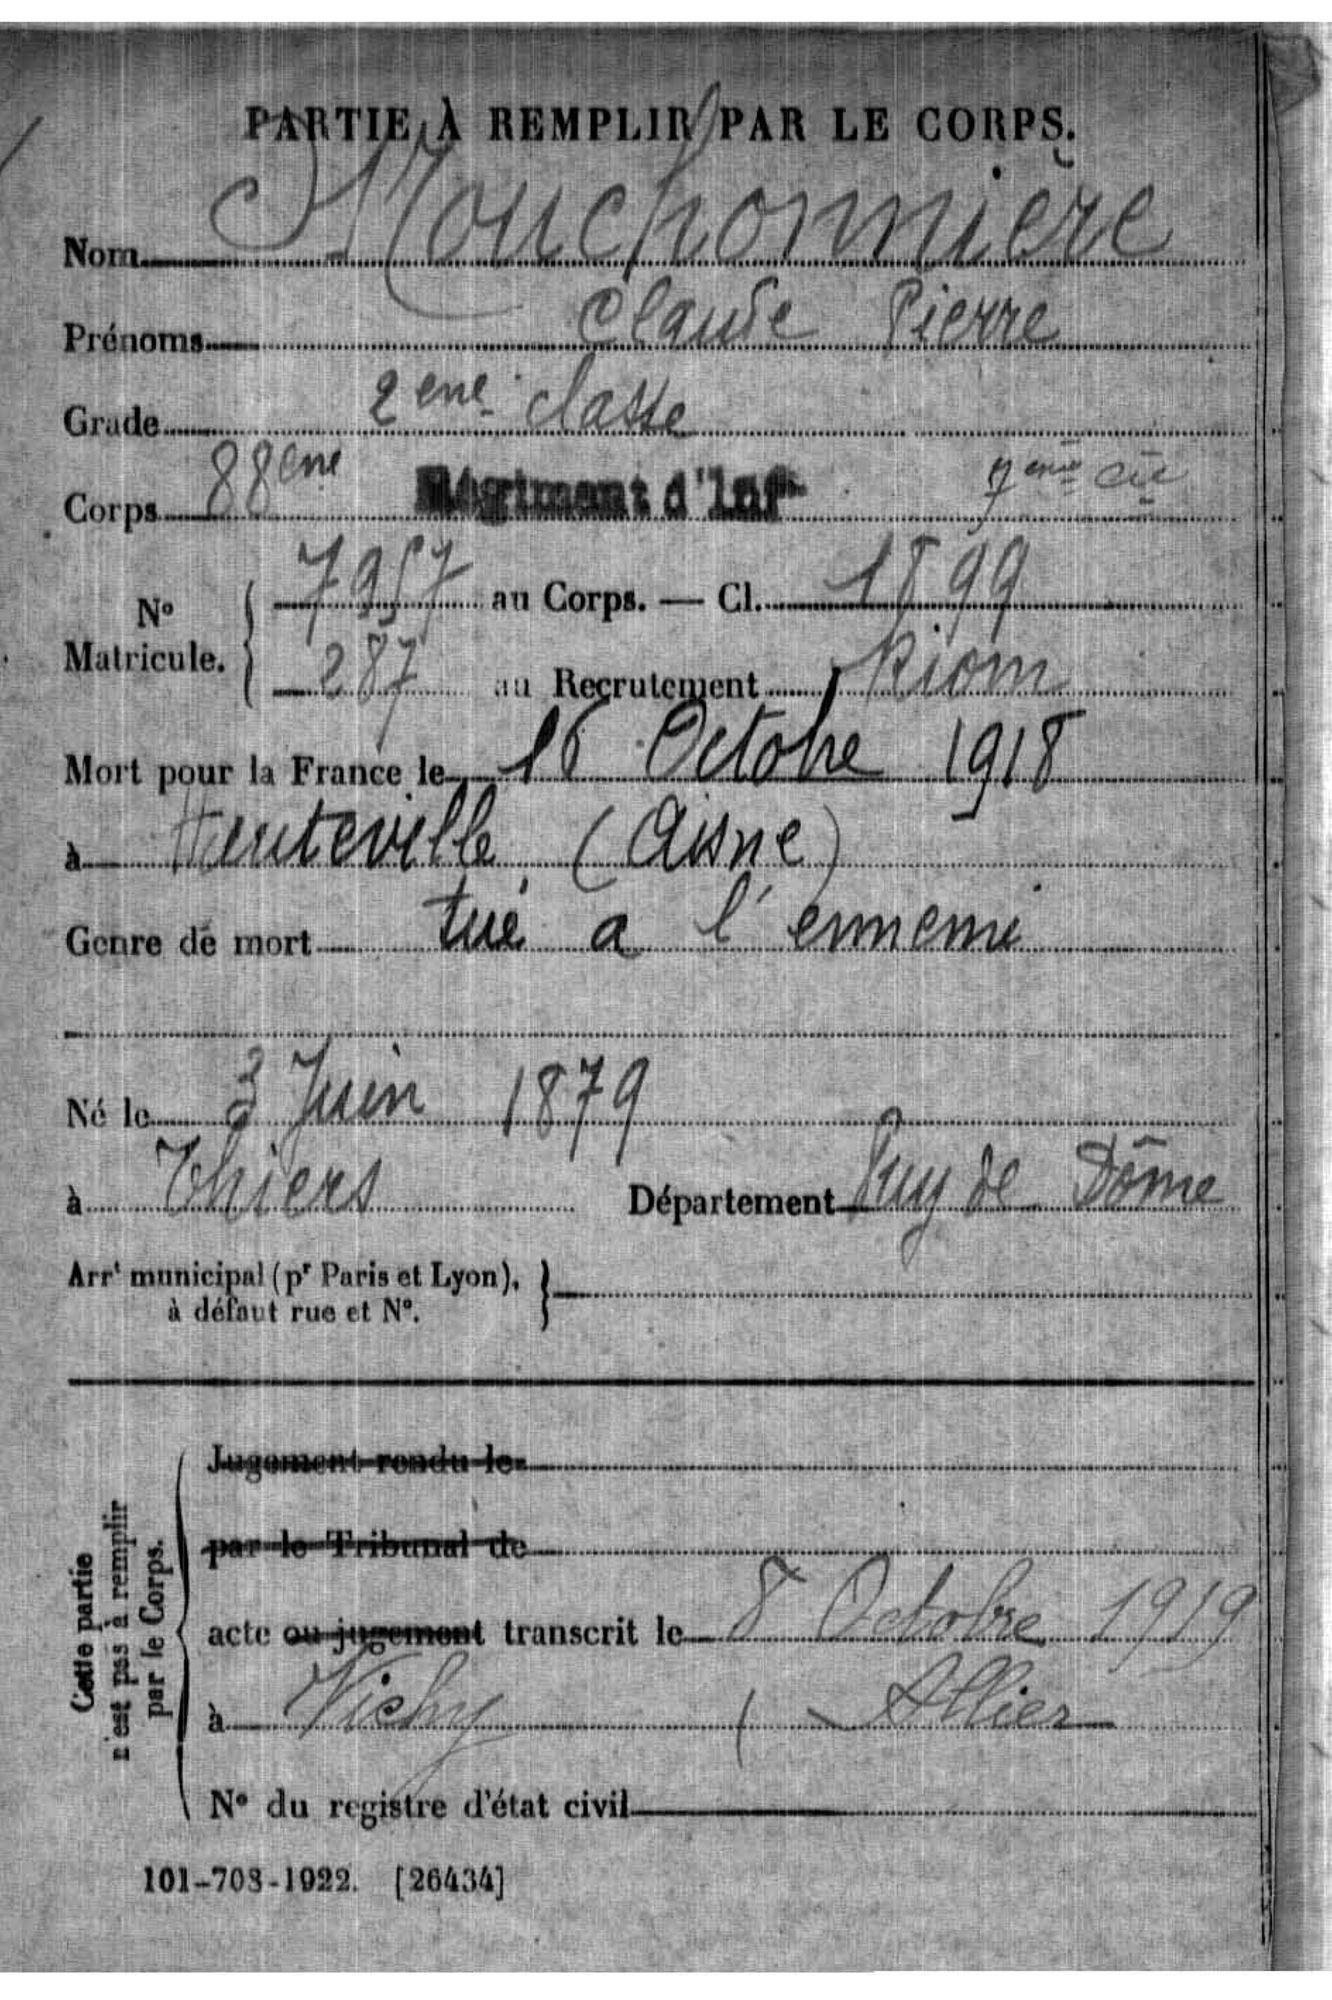 PARTIE À REMPLIR PAR LE CORPS.
Nom Mouchonnière
Prénoms Claude Pierre
Grade 2eme classe
Corps 88eme Régiment d'Inf 7eme Cie
N° Matricule. { 7957 au Corps. — Cl. 1899
287 au Recrutement Riom
Mort pour la France le 16 Octobre 1918
à Hauteville (Aisne)
Genre de mort tué a l'ennemi
Né le 3 Juin 1879
à Thiers Département Puy de Dôme
Arrt municipal (pr Paris et Lyon), }
à défaut rue et N°.
Cette partie
n'est pas à remplir
par le Corps.
Jugement rendu le
par le Tribunal de
acte ou jugement transcrit le 8 Octobre 1919
à Vichy ( Allier
N° du registre d'état civil
101-708-1922. [26434]